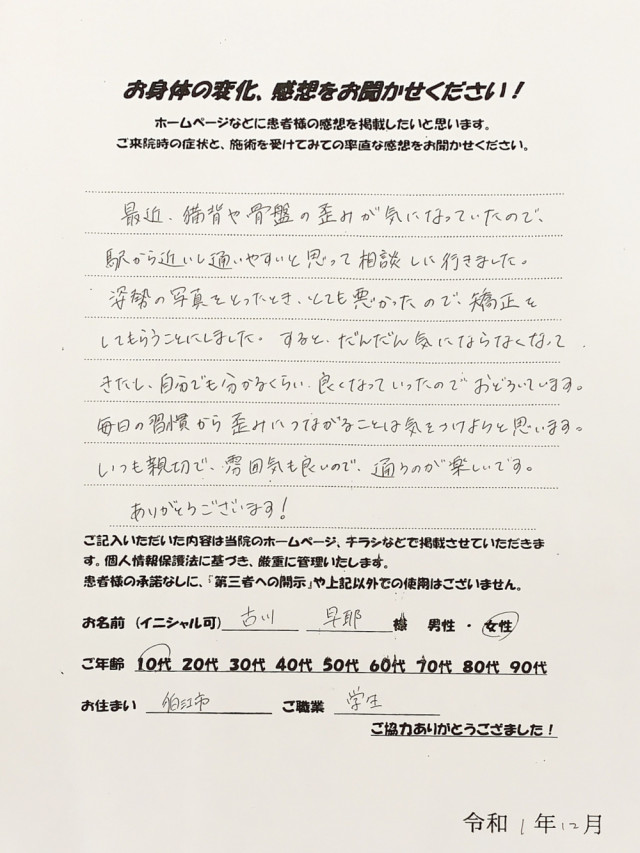 お身体の変化、感想をお聞かせください!
ホームページなどに患者様の感想を掲載したいと思います。
ご来院時の症状と、施術を受けてみての率直な感想をお聞かせください。
最近、猫背や骨盤の歪みが気になっていたので、
駅から近いし通いやすいと思って相談しに行きました。
姿勢の写真をとったとき、とても悪かったので、矯正を
してもらうことにしました。すると、だんだん気にならなくなって
きたし、自分でも分かるくらい良くなっていったのでおどろいています。
毎日の習慣から歪みにつながることは気をつけようと思います。
いつも親切で、雰囲気も良いので、通うのが楽しいです。
ありがとうございます!
ご記入いただいた内容は当院のホームページ、チラシなどで掲載させていただきま
す。個人情報保護法に基づき、厳重に管理いたします。
患者様の承諾なしに、「第三者への開示」や上記以外での使用はございません。
お名前(イニシャル可) 古川 早耶 様 男性・女性
ご年齢 10代 20代 30代 40代 50代 60代 70代 80代 90代
お住まい 狛江市 ご職業 学生
ご協力ありがとうござました!
令和 1年12月